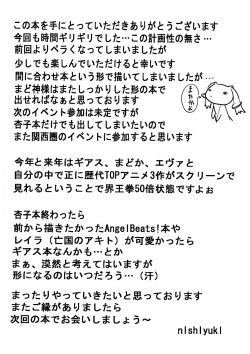 この本を手にとっていただきありがとうございます
今回も時間ギリギリでした…この計画性の無さ…
前回よりペラくなってしまいましたが
少しでも楽しんでいただけると幸いです
間に合わせ本という形で描いてしまいましたが…
まど神様はまたしっかりした形の本で
出せればなぁと思っております
次のイベント参加は未定ですが
杏子本だけでも出してしまいたいので
また関西圏のイベントに参加すると思います
またかよ
今年と来年はギアス、まどか、エヴァと
自分の中で正に歴代TOPアニメ3作がスクリーンで
見れるということで界王拳50倍状態ですよぉ
杏子本終わったら
前から描きたかったAngelBeats!本や
レイラ(亡国のアキト)が可愛かったら
ギアス本なんかも…とか
まぁ、漠然と考えてはいますが
形になるのはいつだろう…(汗)
まったりやっていきたいと思っております
またご縁がありましたら
次回の本でお会いしましょう〜
nishiyuki